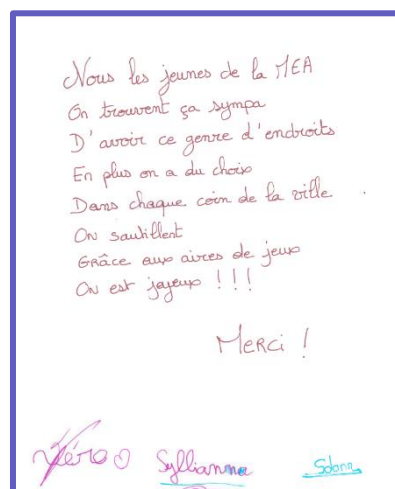 Nous les jeunes de la MEA
On trouvent ça sympa
D'avoir ce genre d'endroits
En plus on a du choix
Dans chaque coin de la ville
On sautillent
Grâce aux aires de jeux
On est joyeux !!!
Merci !
Syllianna Solann